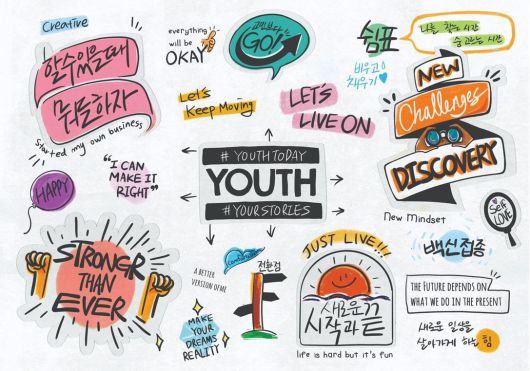 Creative
할수있을때
뭐든하자
Started my own business
everything
will be
OKAY
고민보다
GO!
쉼표
나를 찾는 시간
숨 고르는 시간
비우고
채우기
Let's
Keep Moving
LET'S
LIVE ON
NEW
Challenges
DISCOVERY
"I CAN
MAKE IT
RIGHT"
HAPPY
# YOUTHTODAY
YOUTH
# YOURSTORIES
Self
LOVE
New Mindset
STRONGR
THAN
EVER
A BETTER
VERSION OF ME
전환점
MAKE
YOUR
DREAMS
REALITY
JUST LIVE!!!
새로운
시작과 끝
life is hard but it's fun
백신접종
THE FUTURE DEPENDS ON
WHAT WE DO IN THE PRESENT
새로운 일상을
살아가게 하는 힘